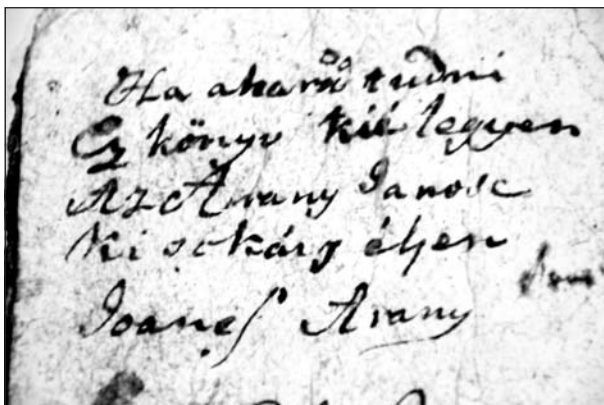 Ha akarod tudni
Ez könyv kié legyen
Az Arany Janose
Ki sokáig éljen
Joanes Arany